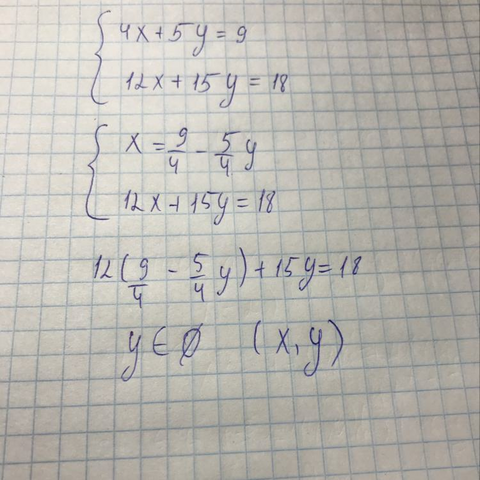 4x+5y=9
12x+15y=18
x=9/4-5/4y
12x+15y=18
12(9/4-5/4y)+15y=18
y∈∅ (x,y)